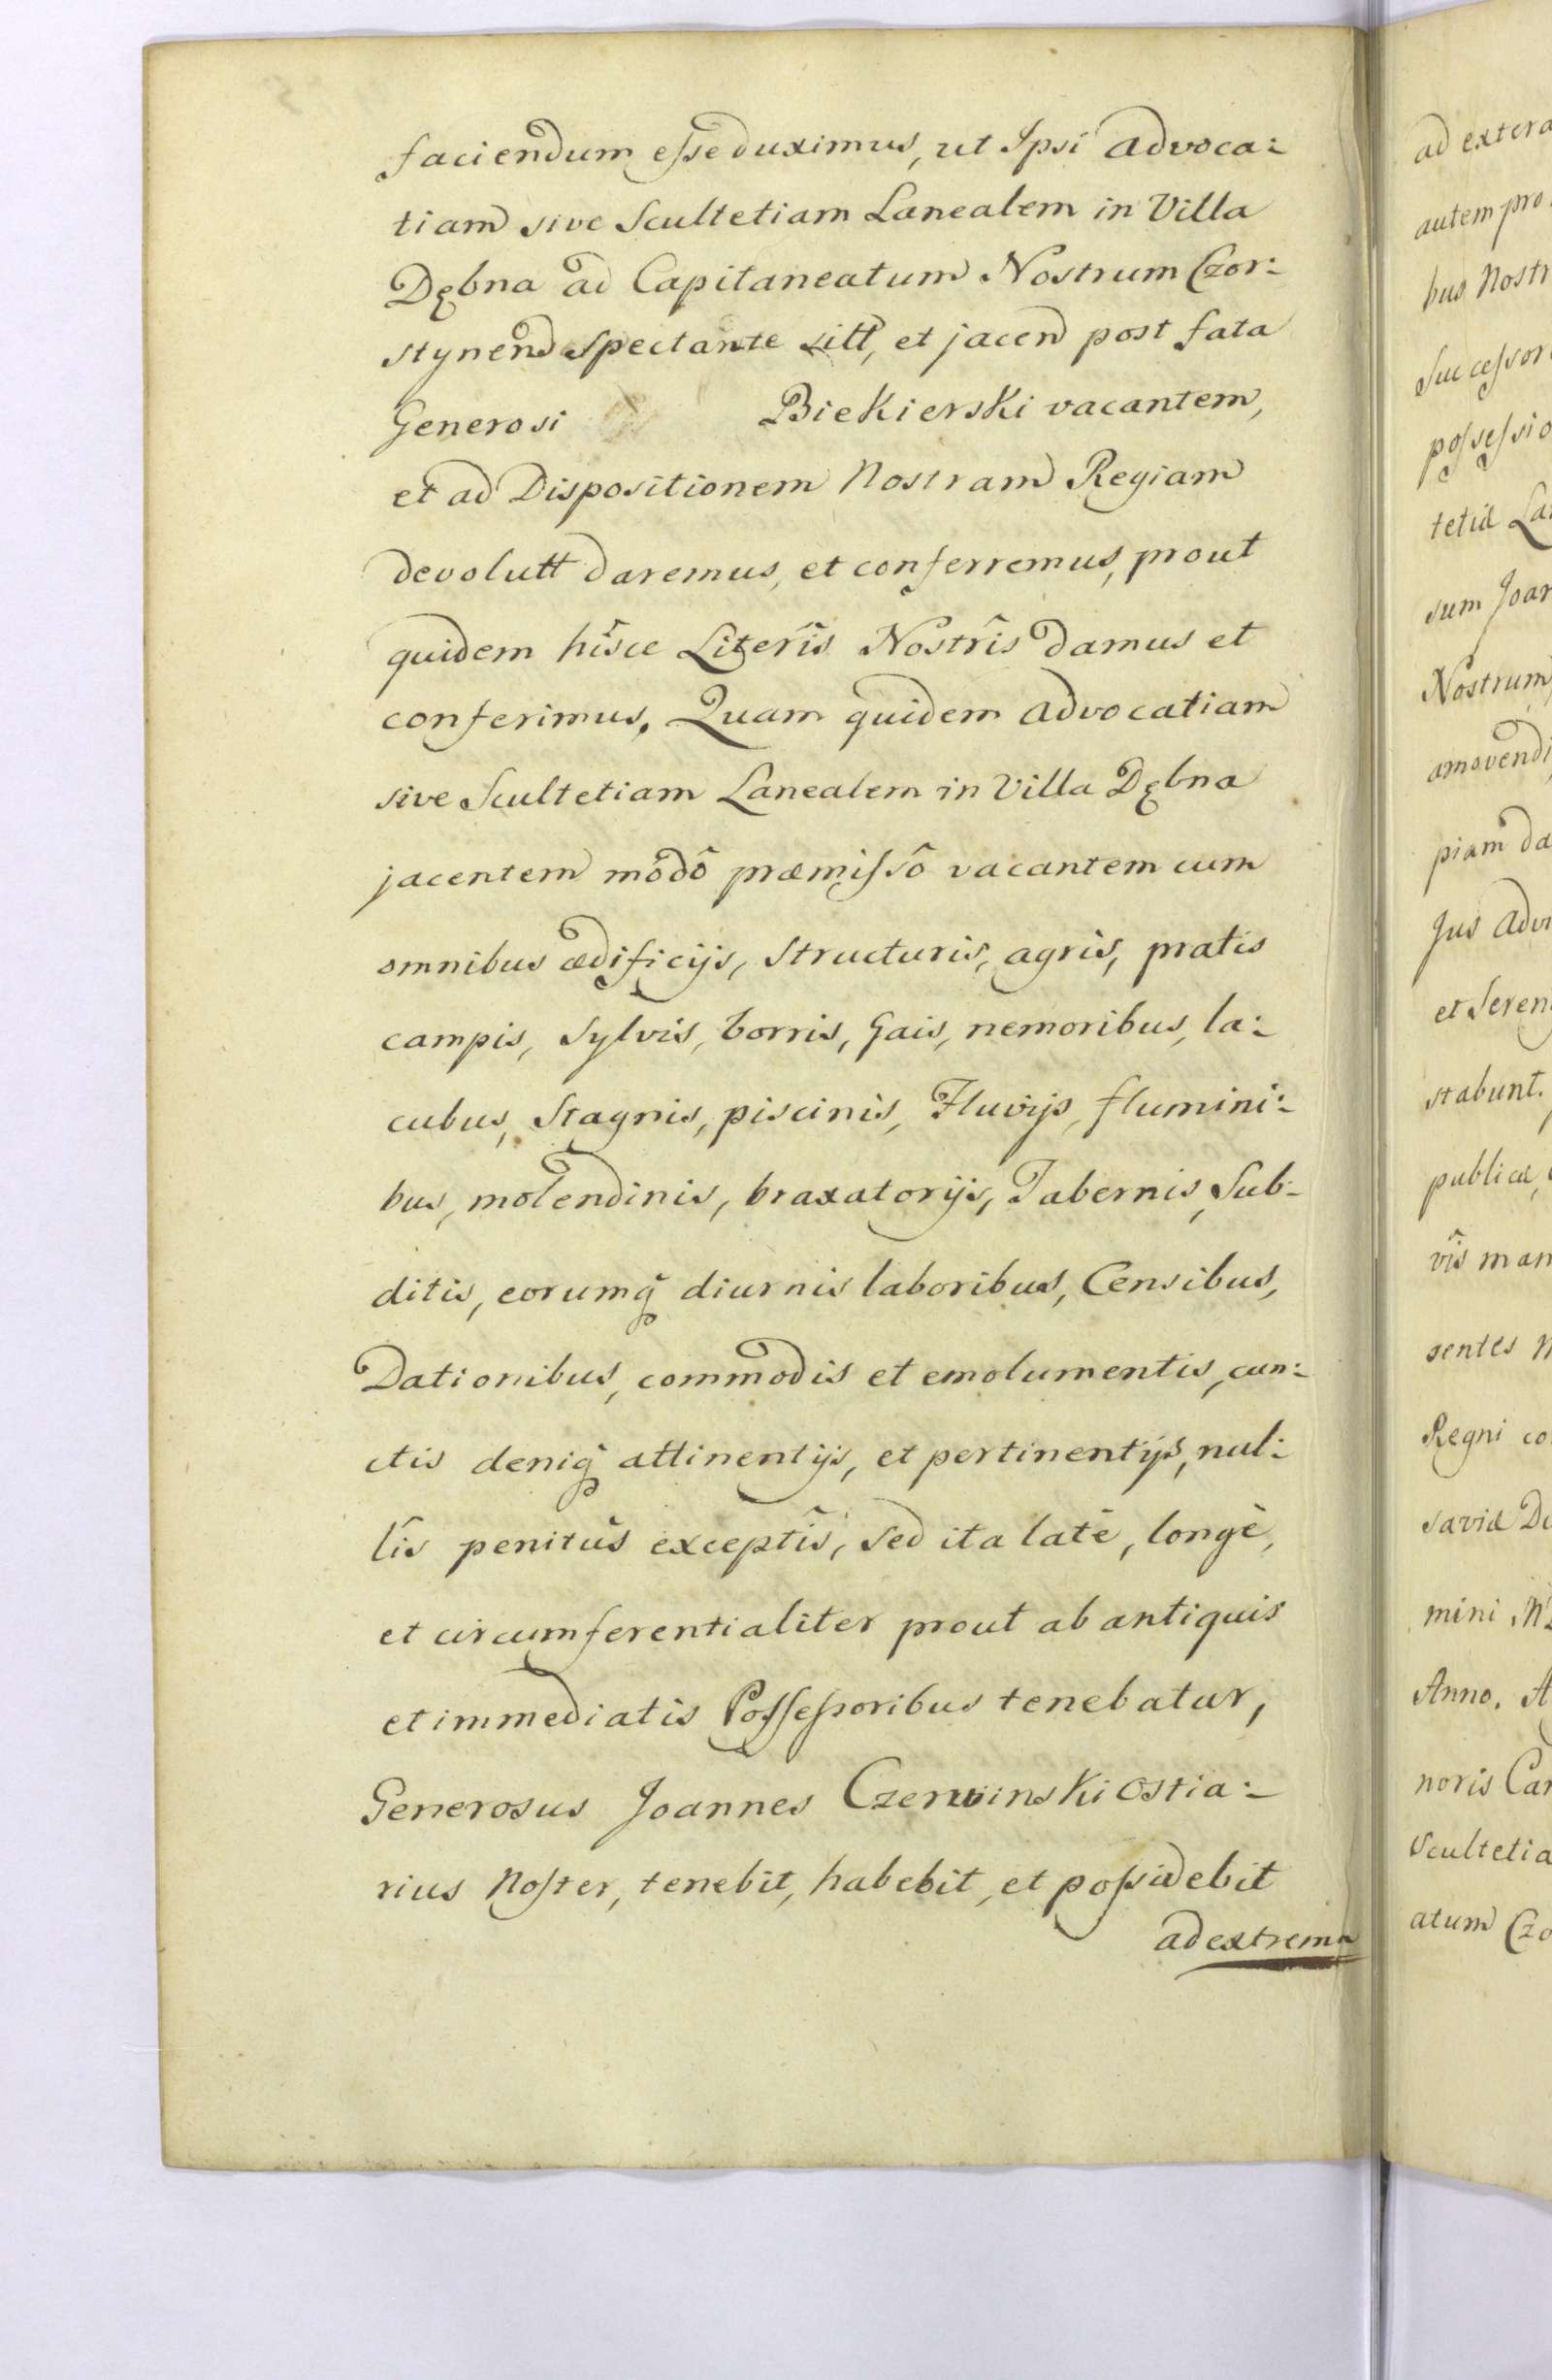 faciendum esse duximus, ut Ipsi Advoca:
tiam sive Scultetiam Lanealem in Villa
Dębna ad Capitaneatum Nostrum Czor:
stynens spectante sitt, et jacen post fata
Generosi Biekierski vacantem,
et ad Dispositionem Nostram Regiam
devolutt daremus, et conferremus, prout
quidem hîsce Literîs Nostrîs damus et
conferimus. Quam quidem Advocatiam
sive Scultetiam Lanealem in Villa Dębna
jacentem môdô præmissô vacantem cum
omnibus ædificijs, Structuris, agris, pratis
campis, Sylvis, borris, Gais, nemoribus, la:
cubus, Stagnis, piscinis, Fluvijs, flumini:
bus, molendinis, braxatorijs, Tabernis, Sub-
ditis, eorumq diurnis laboribus, Censibus,
Dationibus, commodis et emolumentis, cun:
ctis deniq attinentijs, et pertinentijs, nul:
lîs penitùs exceptîs, sed ita latè, longè,
et circumferentialiter prout ab antiquis
et immediatis Possessoribus tenebatur,
Generosus Joannes Czerwinski Ostia:
rius Noster, tenebit, habebit, et possidebit
ad extrema
ad extera
autem pro
bus Nostr
Successor
possessio
tetiæ La
sum Joan
Nostrum
amovendi
piam da
Jus Advo
et Seren
stabunt.
publicæ,
vîs man
sentes N
Regni co
saviæ Di
mini M
Anno. A
noris Can
Scultetia
atum Czo